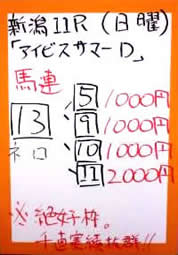 新潟11R(日曜)
「アイビスサマーD」
馬連
13 ネロ
5 1000円
9 1000円
10 1000円
11 2000円
※絶好枠。
千直実績抜群!!